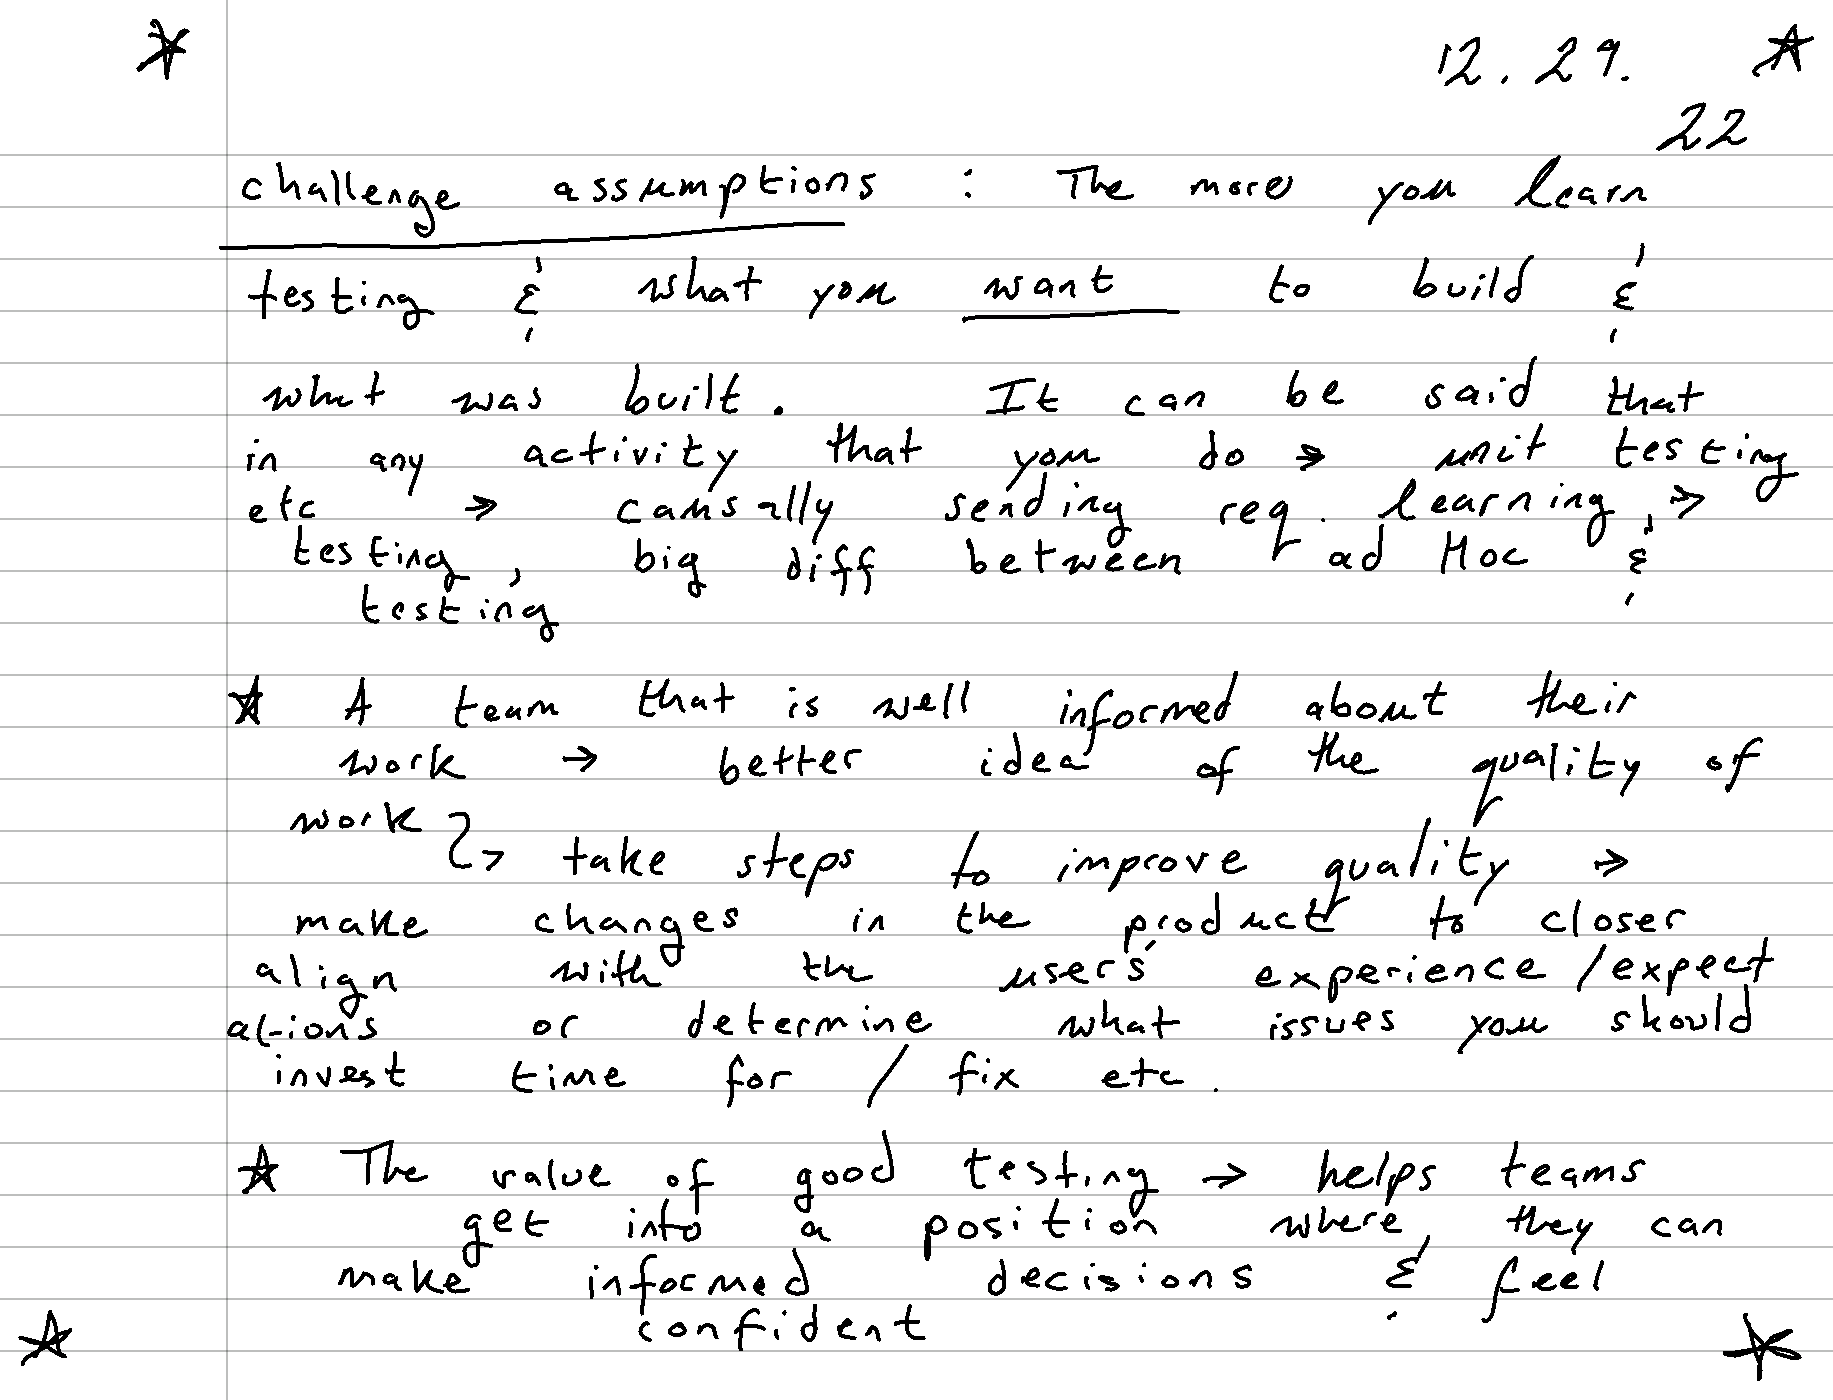 12.29.
22
challenge assumptions : The more you learn
testing & what you want to build &
what was built. It can be said that
in any activity that you do → unit testing
etc → causally sending req. learning, →
testing, big diff between ad Hoc &
testing
☆ A team that is well informed about their
work → better idea of the quality of
work ↳ take steps to improve quality →
make changes in the product to closer
align with the users' experience / expect
ations or determine what issues you should
invest time for / fix etc.
☆ The value of good testing → helps teams
get into a position where they can
make informed decisions & feel
confident